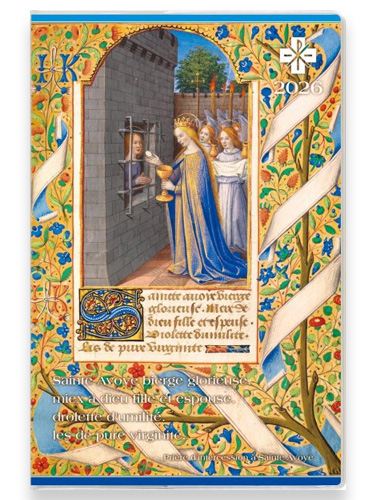 2026
Saincte auoye vierge
glorieuse. Mere de
dieu fille et espouse.
Violette dumilite.
Lis de pure virginite
Sainte Avoye bierge glorieuse,
miex a dieu fille et espouse,
drolette d'umilité,
fes de pure virginité.
Prière d'intercession à Sainte Avoye